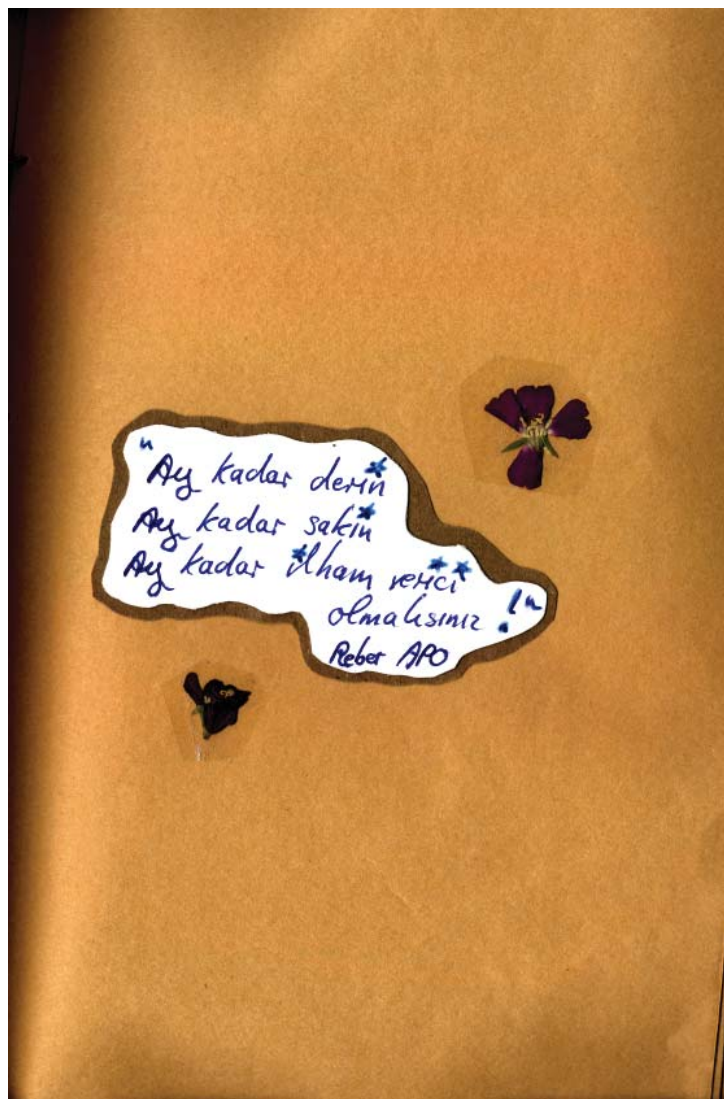 "Ay kadar derin
Ay kadar sakin
Ay kadar ilham verici
olmalısınız!"
Reber APO